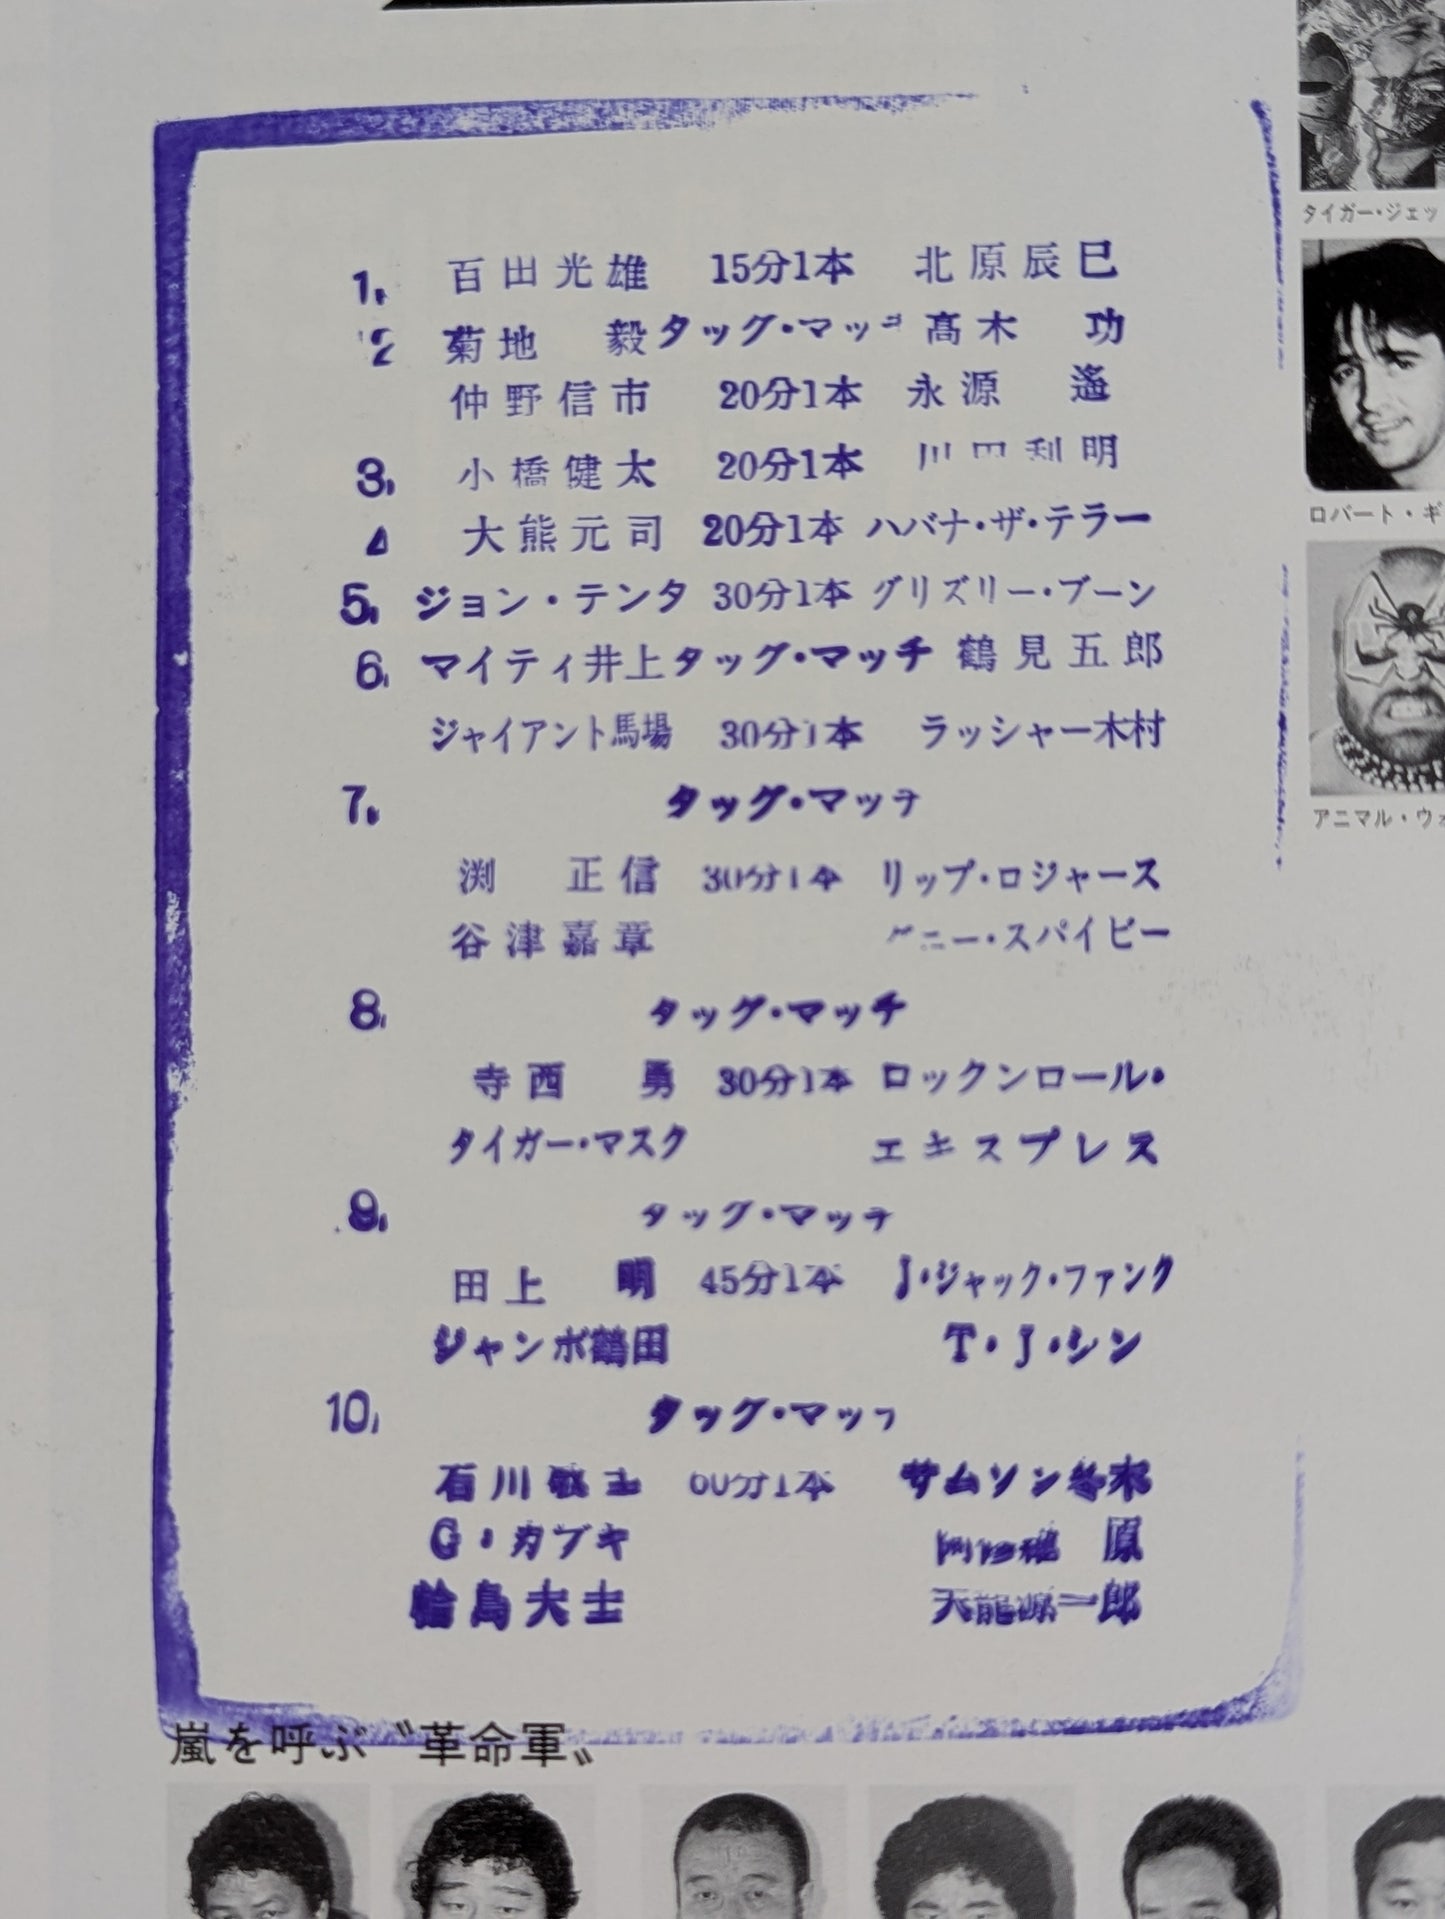 1. 百田光雄 15分1本 北原辰巳
2 菊地 毅 タッグ・マッチ 髙木 功
仲野信市 20分1本 永源 遙
3. 小橋健太 20分1本 川田利明
4 大熊元司 20分1本 ハバナ・ザ・テラー
5. ジョン・テンタ 30分1本 グリズリー・ブーン
6. マイティ井上 タッグ・マッチ 鶴見五郎
ジャイアント馬場 30分1本 ラッシャー木村
7. タッグ・マッチ
渕 正信 30分1本 リップ・ロジャース
谷津嘉章 グニー・スパイビー
8. タッグ・マッチ
寺西 勇 30分1本 ロックンロール・
タイガー・マスク エキスプレス
9. タッグ・マッチ
田上 明 45分1本 J・ジャック・ファンク
ジャンボ鶴田 T・J・シン
10. タッグ・マッチ
石川敬士 60分1本 サムソン冬木
G・カブキ 阿修羅 原
輪島大士 天龍源一郎
嵐を呼ぶ〝革命軍〟
タイガー・ジェッ
ロバート・ギ
アニマル・ウォ